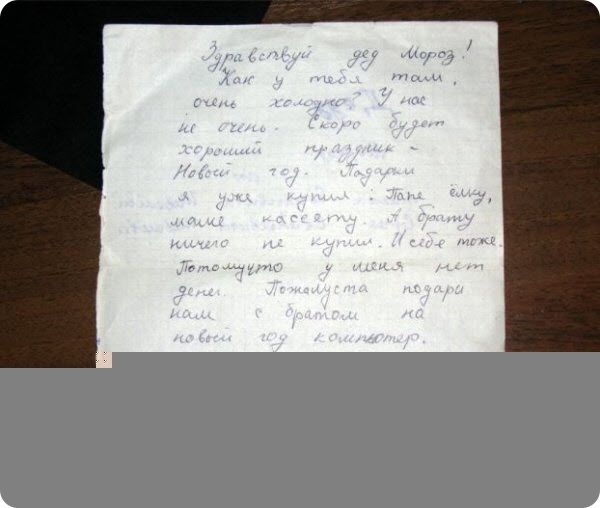 Здравствуй дед Мороз!
Как у тебя там,
очень холодно? У нас
не очень. Скоро будет
хороший праздник -
Новый год. Подарки
я уже купил: Папе ёлку,
маме кассету. А брату
ничего не купил. И себе тоже.
Потомучто у меня нет
денег. Пожалуста подари
нам с братом на
новый год компютер.